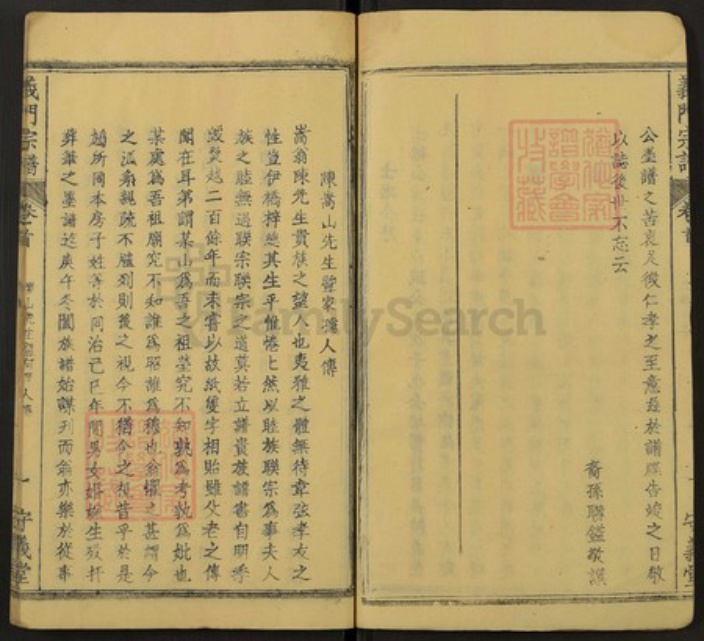 公墨譜之苦衷足徵仁孝之至意茲於譜牒告竣之日敬
以誌後世不忘云
裔孫聯鎰敬譔
義門宗譜
卷首
一
守義堂
陳嵩山先生暨家孺人傳
嵩翁陳先生貴族之望人也夷雅之體無待韋弦孝友之
性豈伊橋梓其生平惟惓惓然以睦族聯宗為事夫人
族之睦無過聯宗聯宗之道莫若立譜貴族譜書自明季
燬越二百餘年而未嘗以故紙隻字相貽雖父老之傳
聞在耳第謂某山為吾之祖塋究不知孰為考孰為妣也
某處為吾祖廟究不知誰為昭誰為穆也翁懼之甚謂今
之派系親疏不臚列則後之視今不猶今之視昔乎於是
趨所同本房子姓等於同治己巳年間男女婚娶生歿抒
之墨譜迄庚午冬闔族譜始謀刋而翁亦樂於從事
義門宗譜
卷首
一
守義堂
FamilySearch